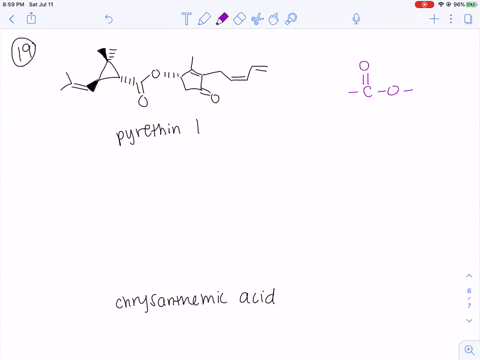 8:59 PM Sat Jul 11
96%
19
O
O
O
O
- C - O -
pyrethin I
chrysanthemic acid
6
/
7